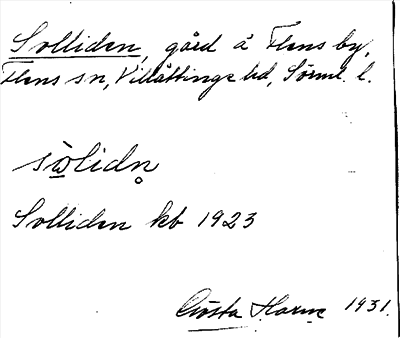 Solliden, gård å Flens by,
Flens sn, Villåttinge hd, Sörml. l.
sωlidn̥
Solliden kb 1923
Gösta Harne 1931.